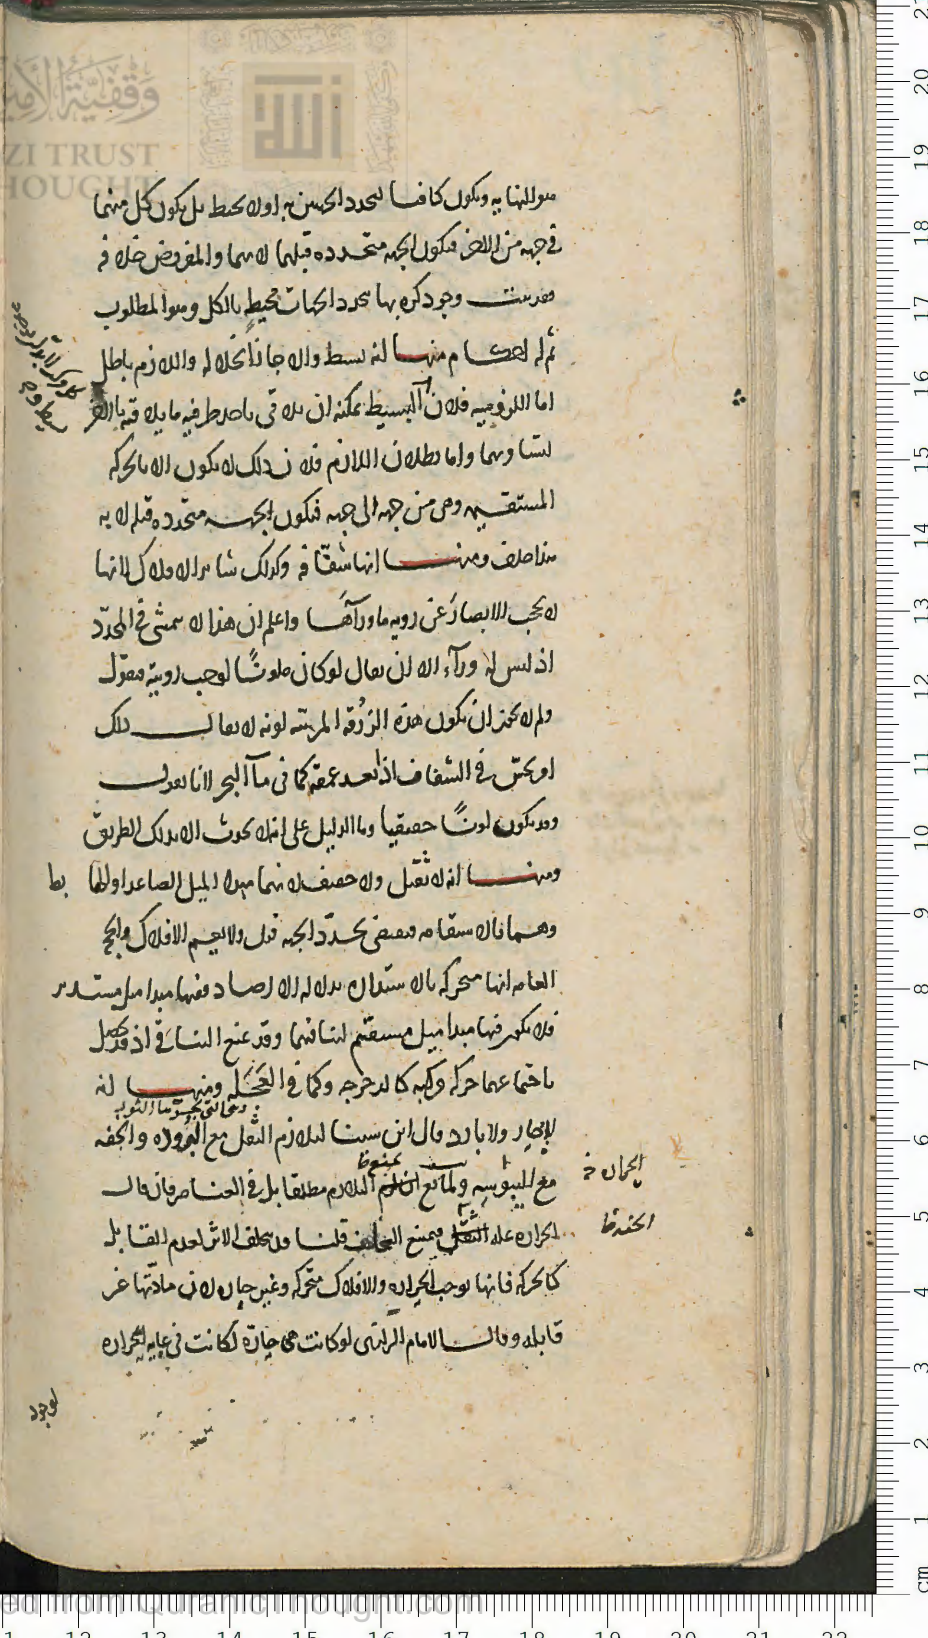 هو النهاية ويكون كافيا لتحدد الجهتين به اولا يحيط بل يكون كل منهما
في جهة من الاخر فيكون الجهة متحددة قبلهما لا بهما والمفروض خلافه
فقد ثبت وجود كرة بها تحدد الجهات محيط بالكل وهو المطلوب
ثم له احكام منها انه بسيط والا جاز انحلاله واللازم باطل
اما اللزومية فلان البسيط يمكنه ان يلاقي باحد طرفيه ما يلاقيه بالاخر
لتساويهما واما بطلان اللازم فلان ذلك لا يكون الا بالحركة
المستقيمة وهي من جهة الى جهة فتكون الجهة متحددة قبله لا به
هذا خلف ومنها انها شفافة وكذلك سائر الافلاك لانها
لا يحجب الابصار عن روية ما ورآها واعلم ان هذا لا يتمشى في المحدد
اذ ليس له ورآء الا ان يقال لوكان ملونًا لوجب رويته فنقول
ولم لا يجوز ان يكون هذه الزرقة المرئية لونه لا يقال ذلك
امر يحس في الشفاف اذا بعد عمقه كما في مآ البحر لانا نقول
وقد يكون لونًا حقيقيا وما الدليل على انه لا يحدث الا بذلك الطريق
ومنها انه لا ثقيل ولا خفيف لانهما مبدا الميل الصاعد او الهابط
وهما بالاستقامة فيقتضى تحدد الجهة قبل ولا يعم الافلاك والحجة
العامة انها متحركة بالاستدارة بدلالة الارصاد ففيها مبدا ميل مستدير
فلا يكون فيها مبدا ميل مستقيم لتنافيهما وقد يمنع التنافي اذ قد يحصل
باجتماعهما حركة مركبة كالدحرجة وكما في العجلة ومنها انه
لا حار ولا بارد قال ابن سينا لتلازم الثقل مع البرودة والخفة
مع اليبوسة
الحرارة خ
الحرارة علة فيمتنع قلنا قد يتخلف الاثر لعدم القابل
الخفة ظ
كالحركة فانها توجب الحرارة والافلاك متحركة وغير حارة لان مادتها غير
قابلة وقال الامام الرازى لو كانت هي حارة لكانت في غاية الحرارة
لوجود